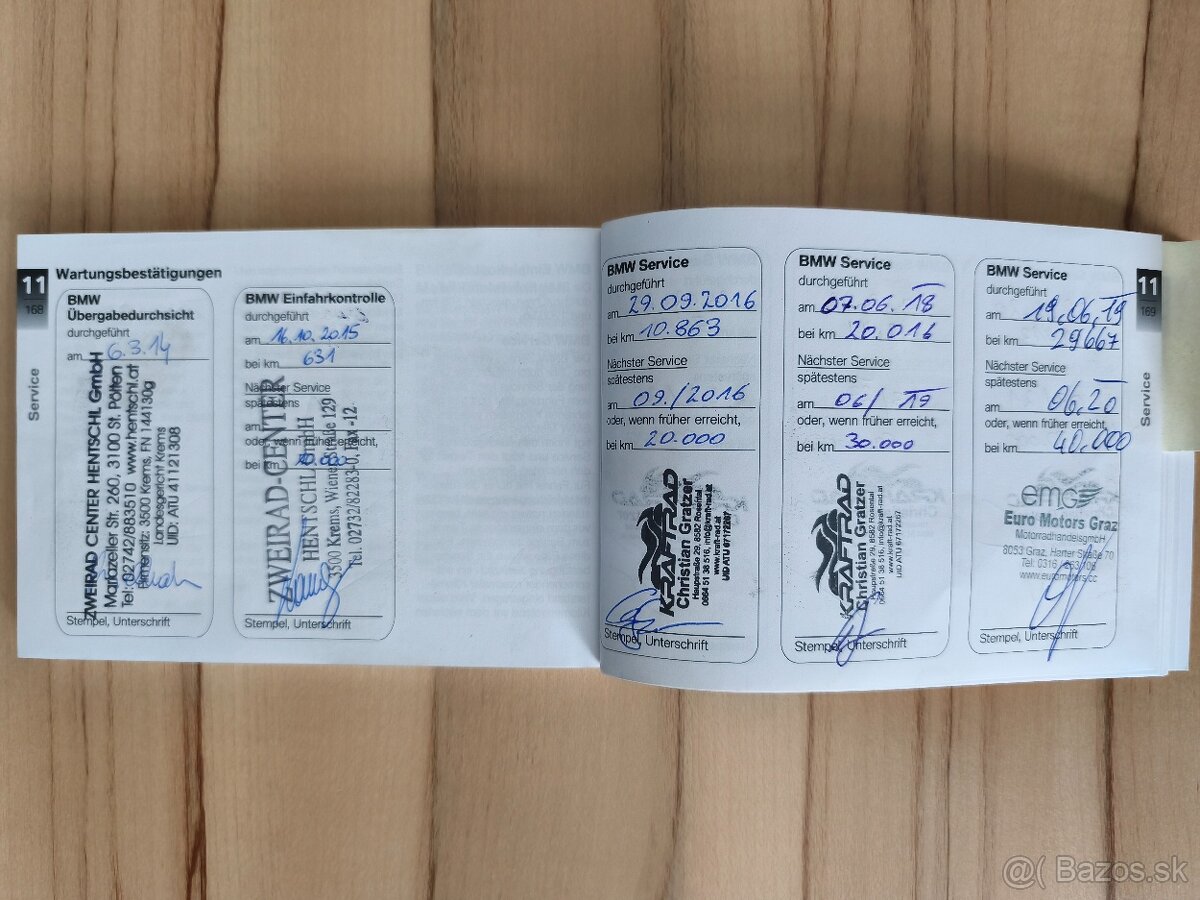 11
168
Service
Wartungsbestätigungen
BMW
Übergabedurchsicht
durchgeführt
am 6.3.14
ZWEIRAD CENTER HENTSCHL GmbH
Mariazeller Str. 260, 3100 St. Pölten
Tel: 02742/883510 www.hentschl.at
Firmensitz: 3500 Krems, FN 144130g
Landesgericht Krems
UID: ATU 41121308
Stempel, Unterschrift
BMW Einfahrkontrolle
durchgeführt
am 16.10.2015
bei km 631
Nächster Service
spätestens
am
oder, wenn früher erreicht,
bei km 10.000
ZWEIRAD-CENTER
HENTSCHL GmbH
3500 Krems, Wiener Straße 129
Tel. 02732/82283-0, Fax -12
Stempel, Unterschrift
BMW Service
durchgeführt
am 29.09.2016
bei km 10.863
Nächster Service
spätestens
am 09./2016
oder, wenn früher erreicht,
bei km 20.000
KRAFTRAD
Christian Gratzer
Hauptstraße 29, 8582 Rosental
0664 51 38 516, info@kraft-rad.at
www.kraft-rad.at
UID ATU 67172267
Stempel, Unterschrift
BMW Service
durchgeführt
am 07.06.18
bei km 20.016
Nächster Service
spätestens
am 06/19
oder, wenn früher erreicht,
bei km 30.000
KRAFTRAD
Christian Gratzer
Hauptstraße 29, 8582 Rosental
0664 51 38 516, info@kraft-rad.at
www.kraft-rad.at
UID ATU 67172267
Stempel, Unterschrift
BMW Service
durchgeführt
am 19.06.19
bei km 29667
Nächster Service
spätestens
am 06.20
oder, wenn früher erreicht,
bei km 40.000
emg
Euro Motors Graz
MotorradhandelsgmbH
8053 Graz, Harter Straße 70
Tel.: 0316 / 253 106
www.euromotors.cc
Stempel, Unterschrift
11
169
Service
@( Bazos.sk